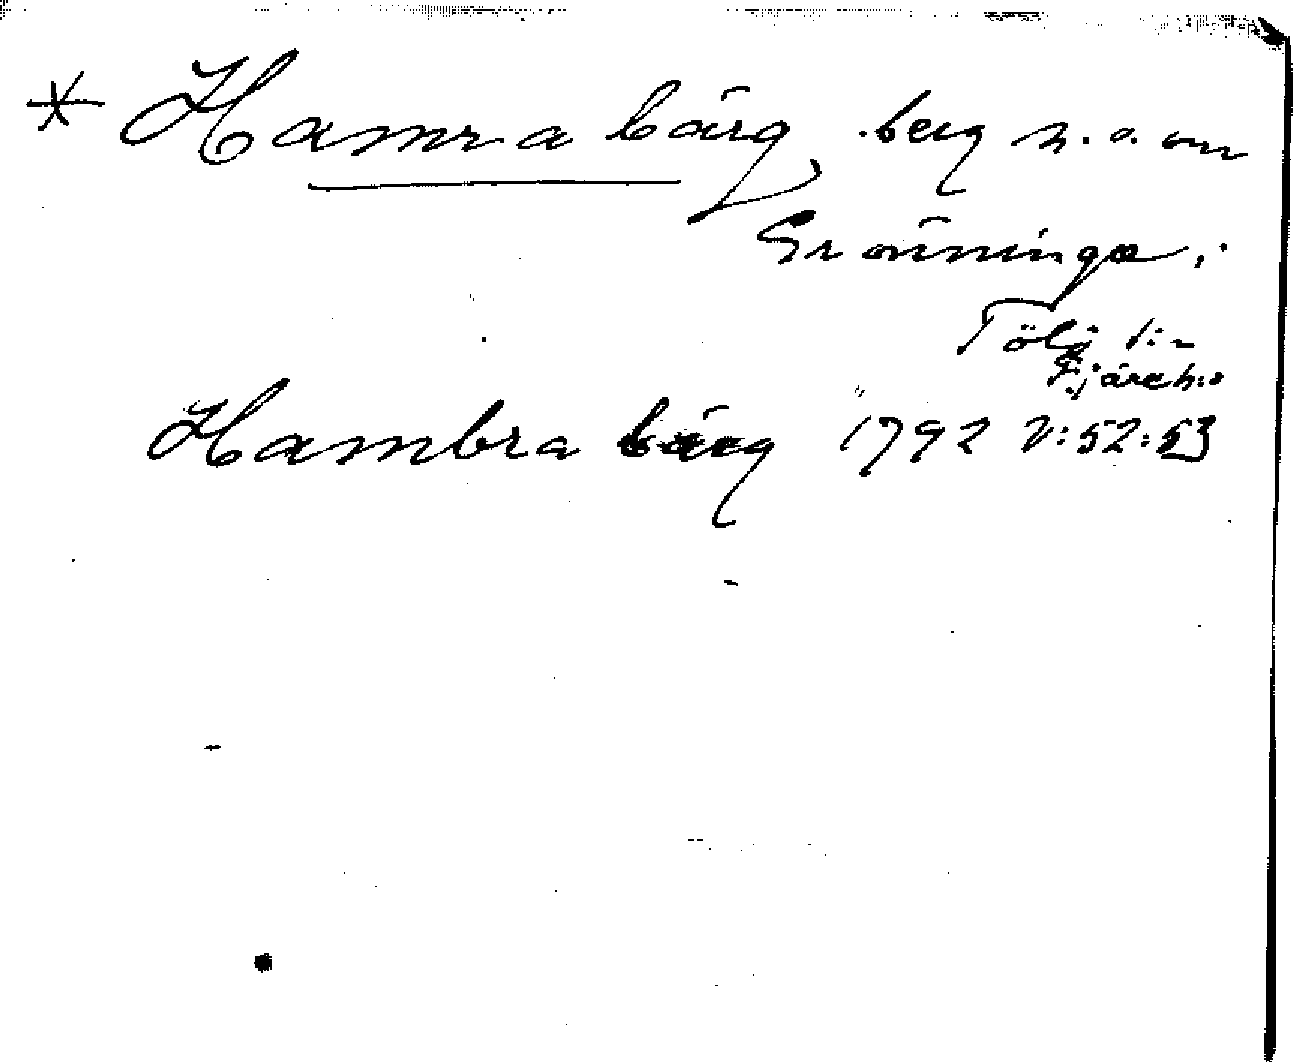 * Hamra bärg, berg n.o. om
Gränninge,
Tölö s:n
Fjäre h:d
Hambra bärg 1792 V:52:53